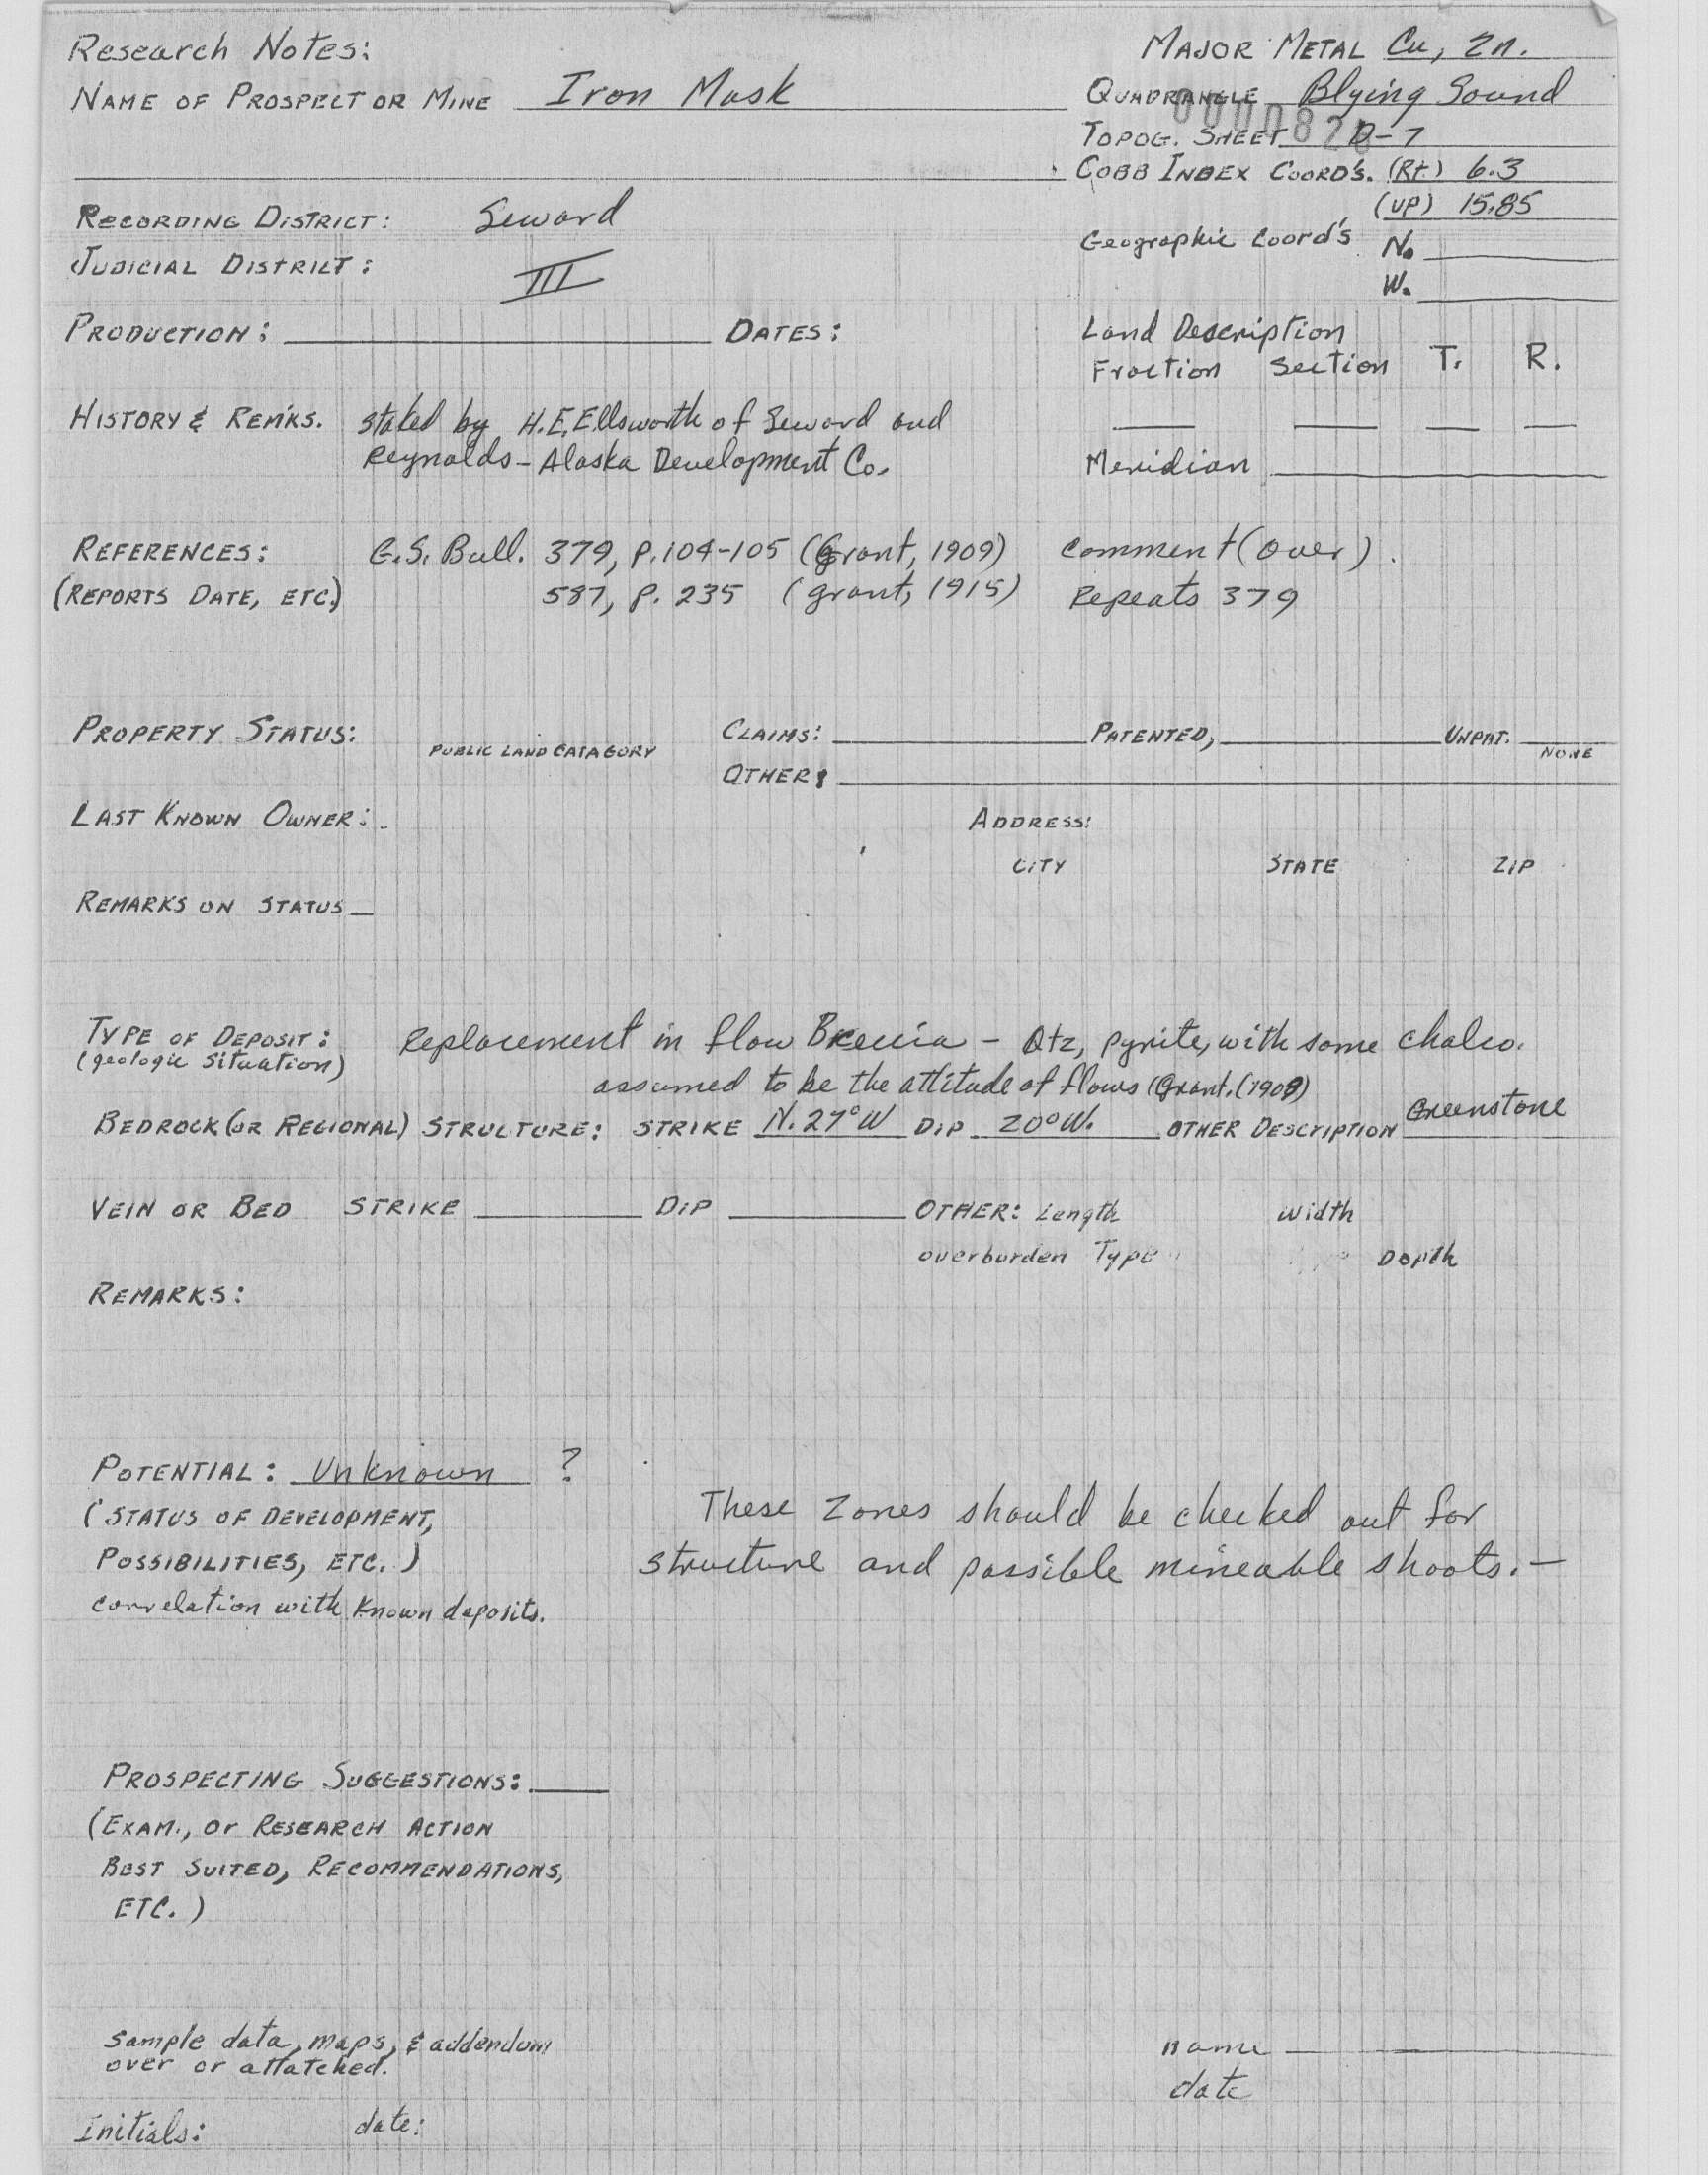 Research Notes:
MAJOR METAL Cu, Zn.
NAME OF PROSPECT OR MINE Iron Mask
QUADRANGLE Blying Sound
TOPOG. SHEET D-7
COBB INDEX COORD'S. (Rt) 6.3
(UP) 15.85
RECORDING DISTRICT: Seward
Geographic Coord's N.
JUDICIAL DISTRICT: III
W.
PRODUCTION: DATES:
Land Description
Fraction Section T. R.
HISTORY & REM'KS. staked by H.E. Ellsworth of Seward and
Reynolds - Alaska Development Co.
Meridian
REFERENCES: G.S. Bull. 379, P. 104-105 (Grant, 1909) comment (over).
(REPORTS DATE, ETC.) 587, P. 235 (Grant, 1915) Repeats 379
PROPERTY STATUS: PUBLIC LAND CATAGORY CLAIMS: PATENTED, UNPAT.
NONE
OTHER:
LAST KNOWN OWNER: ADDRESS:
CITY STATE ZIP
REMARKS ON STATUS
TYPE OF DEPOSIT: Replacement in flow Breccia - Qtz, pyrite, with some chalco.
(geologic situation)
assumed to be the attitude of flows (Grant, (1909)
BEDROCK (OR REGIONAL) STRUCTURE: STRIKE N. 27° W DIP 20° W. OTHER DESCRIPTION Greenstone
VEIN OR BED STRIKE DIP OTHER: Length Width
overburden Type Depth
REMARKS:
POTENTIAL: Unknown ?
(STATUS OF DEVELOPMENT, These zones should be checked out for
POSSIBILITIES, ETC.) structure and possible mineable shoots. —
correlation with known deposits.
PROSPECTING SUGGESTIONS:
(EXAM., or RESEARCH ACTION
BEST SUITED, RECOMMENDATIONS,
ETC.)
Sample data, maps, & addendum
over or attatched.
name
date
Initials: date: